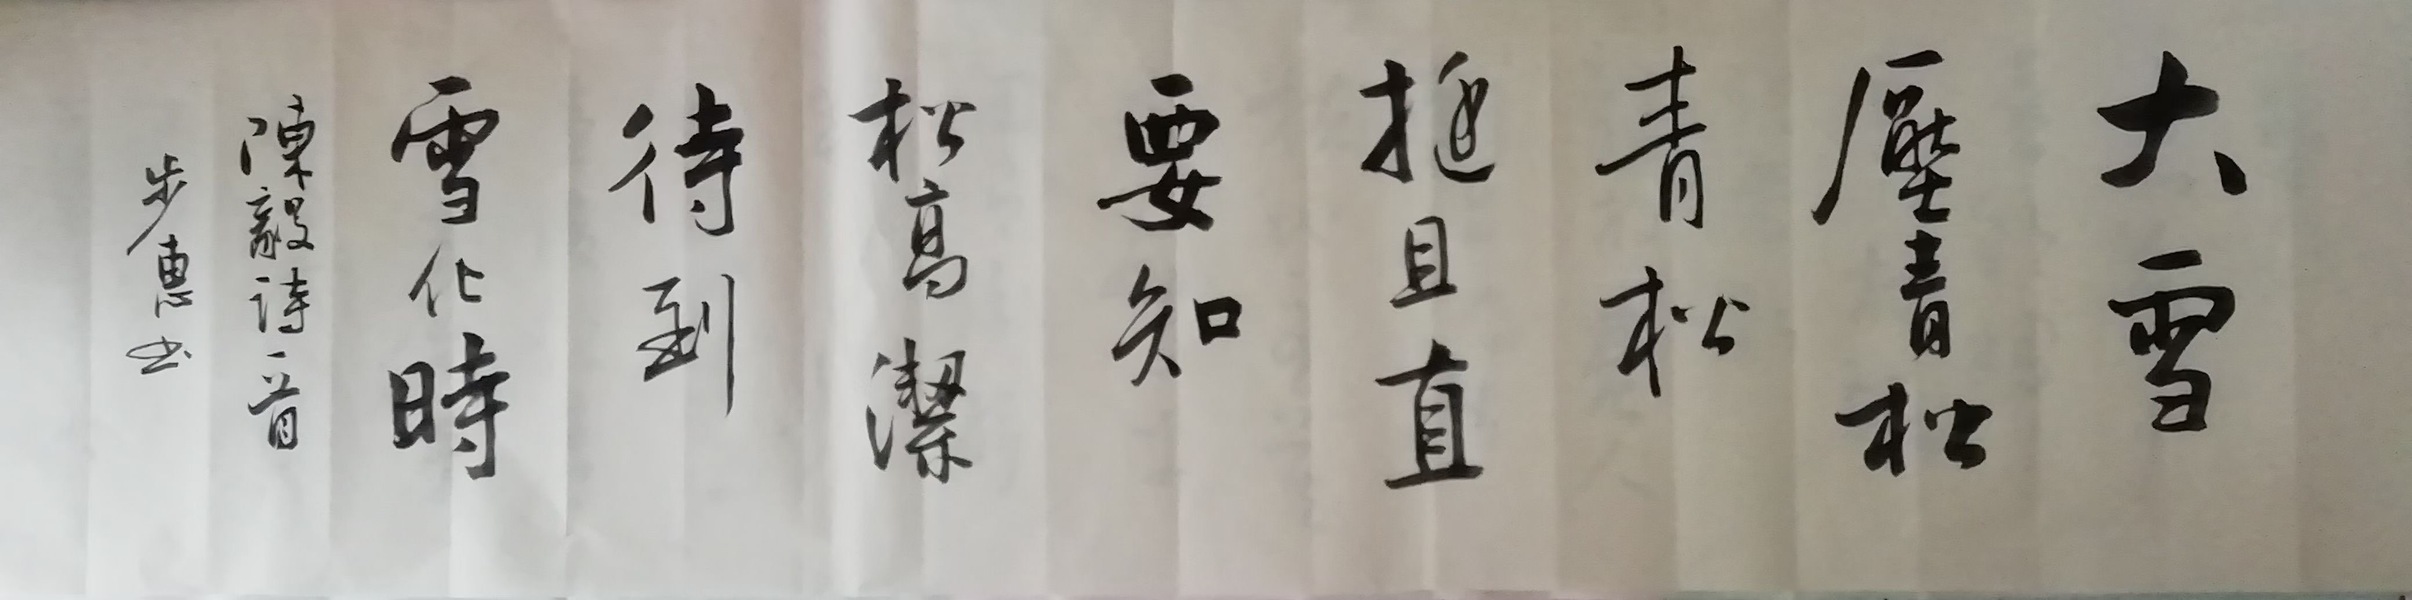 大雪
壓青松
青松
挺且直
要知
松高潔
待到
雪化時
陳毅詩一首
步惠书